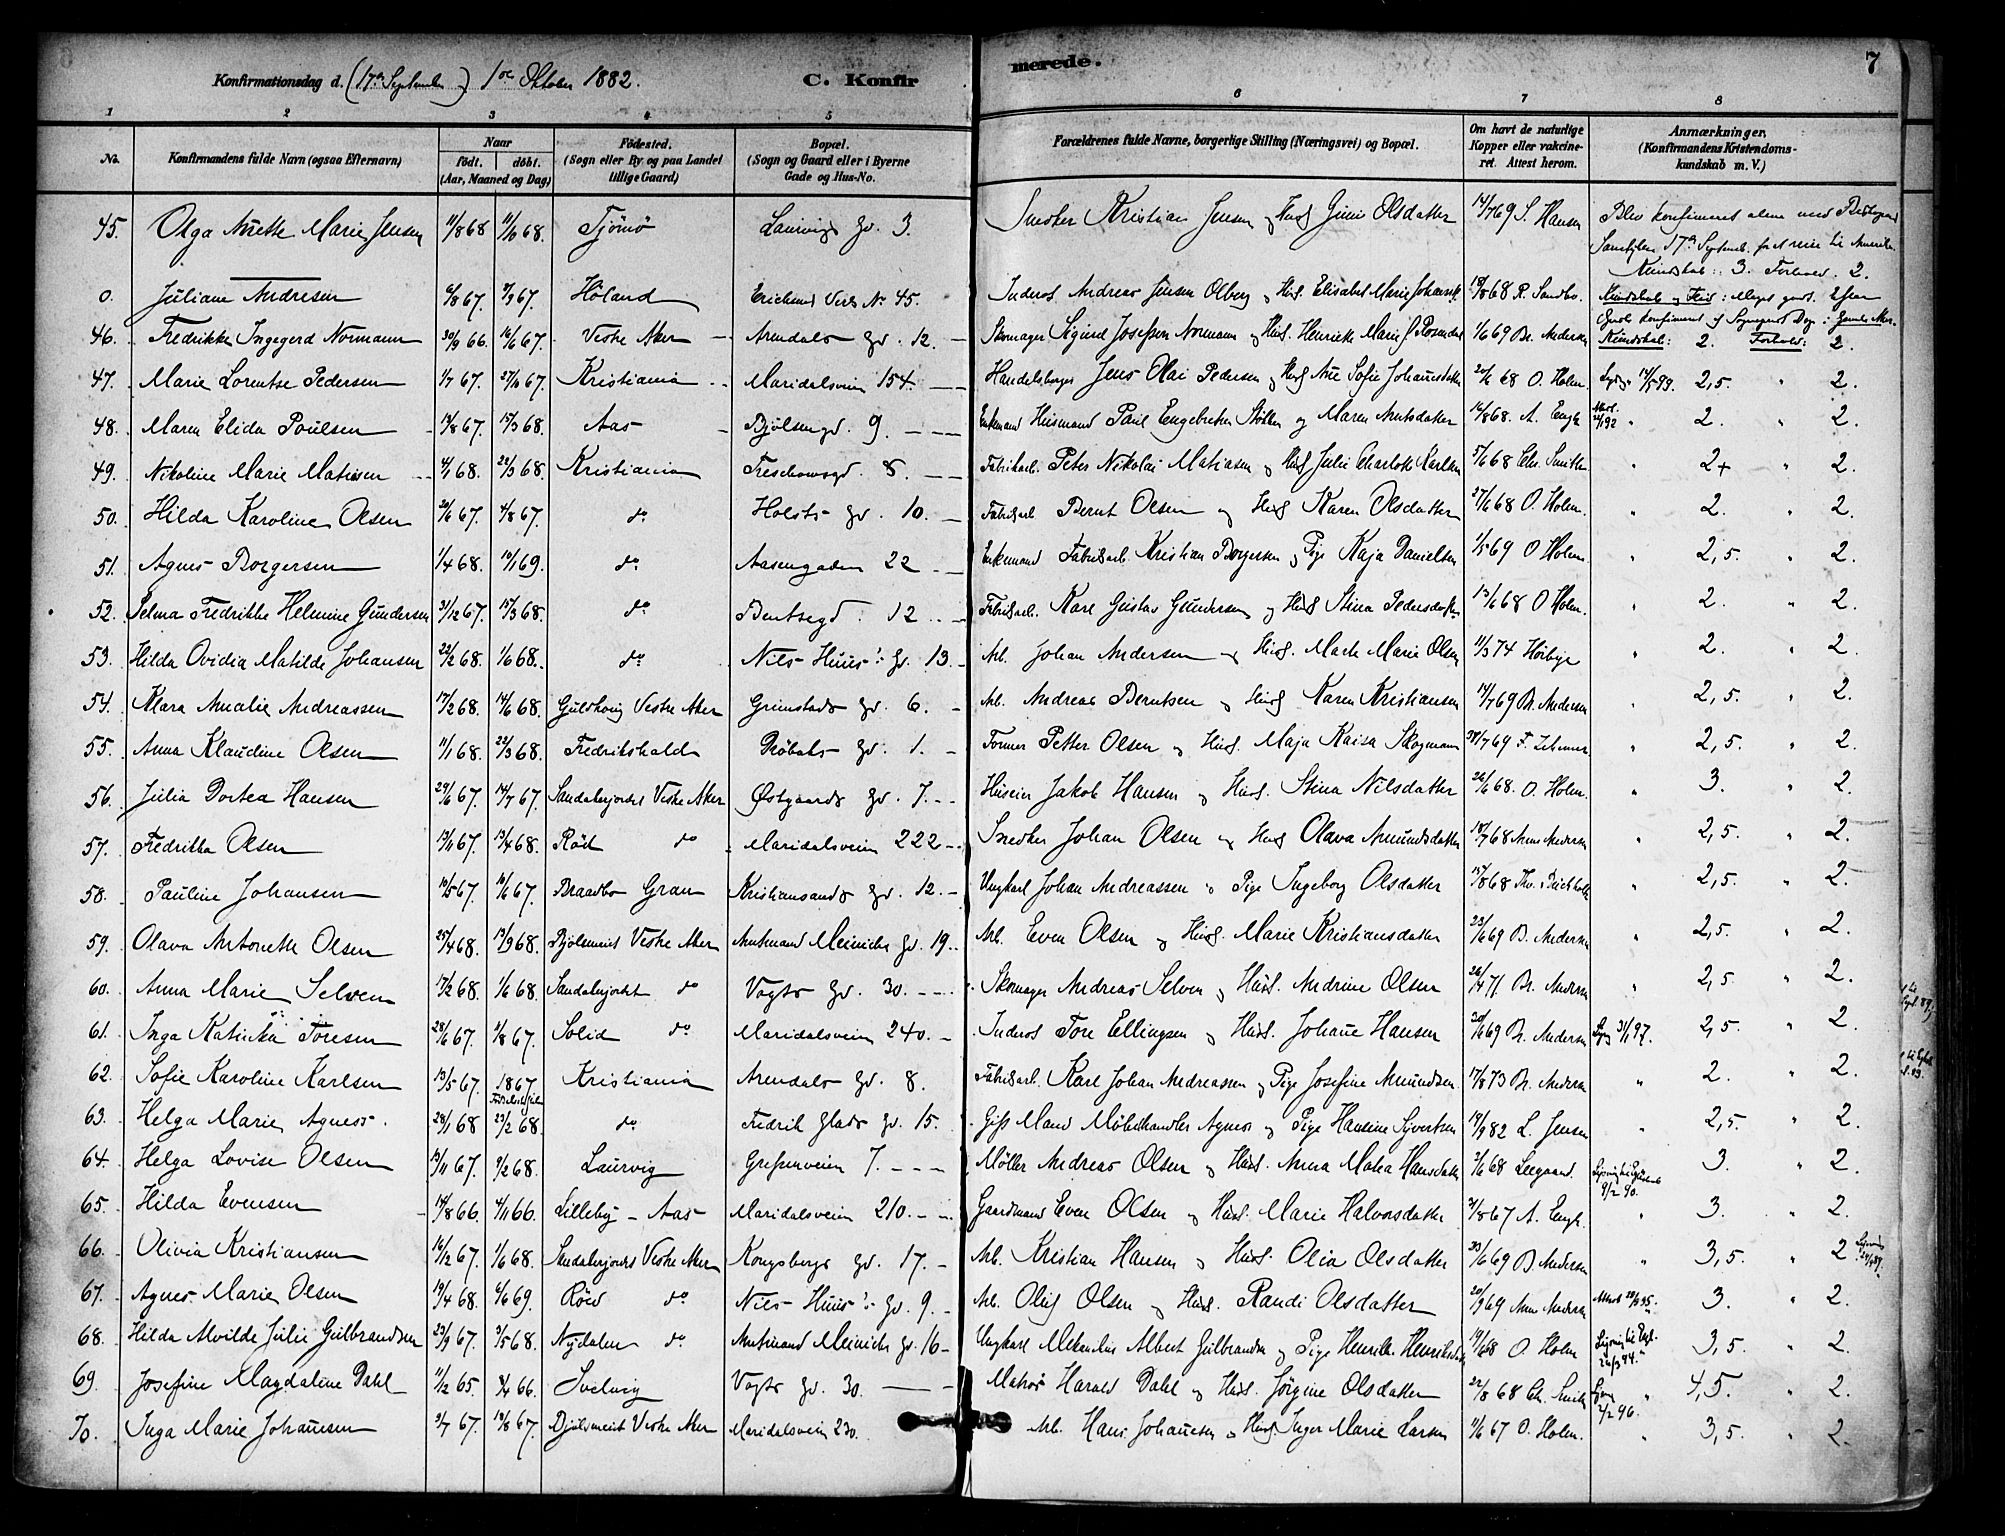 Konfirmationsdag d. (17de September) 1ste Oktober 1882.
C. Konfirmerede.
7
1 2 3 4 5 6 7 8
No.
Konfirmandens fulde Navn (ogsaa Efternavn)
Naar
født. døbt.
(Aar, Maaned og Dag)
Fødested.
(Sogn eller By og paa Landet
tillige Gaard)
Bopæl.
(Sogn og Gaard eller i Byerne
Gade og Hus-No.
Forældrenes fulde Navne, borgerlige Stilling (Næringsvei) og Bopæl.
Om havt de naturlige
Kopper eller vakcine-
ret. Attest herom.
Anmærkninger,
(Konfirmandens Kristendoms-
kundskab m. V.)
45. Olga Anette Marie Jensen 11/8 68 11/10 68. Tjömö Laurvigs Gd. 3. Kristian Jensen og Hust. Olsdatter 14/7 69 S. Hansen Blev konfirmeret alene
17de Septemb. for at reise til Amerika.
Kundskab: 3. Forhold. 2.
0. Juliane Andresen 6/8 67. 67. Höland No 45. Inderst Andreas Jensen Olberg og Hust. Elisabet Marie 68 Kundskab og Flid: Meget godt.
46. Fredrikke Ingegerd Normann 30/9 66. 16/6 67. Vestre Aker Arendals Gd. 12. Skomager Sigurd Josefsen Normann og Hust. Henriette Marie 1/6 69 Br. Andersen Kundskab: 2. Forhold: 2.
47. Marie Lorentse Pedersen 1/7 67. 27/10 67. Kristiania Maridalsveien 154. Handelsborger Jens Olai Pedersen og Hust. Ane Sofie Johannesdatter 68 O. Holm. 2,5. " 2.
48. Maren Elida Poulsen 13/8 67. 15/3 68. Aas Bjølsengd. 9. Enkemand Husmand Paul Engebretsen og Maren Knutsdatter 16/8 68. A. Engh 2. 2.
49. Nikoline Marie Matisen 4/1 68. 22/3 68. Kristiania Treschowsgd. 8. Fabrikarb. Peter Nikolai Matiasen og Hust Julie Charlotte Karlsen 5/6 68 Chr. Smith " 2+ " 2.
50. Hilda Karoline Olsen 20/6 67. 4/8 67. do Holsts Gd. 10. Fabrikarb. Bernt Olsen og Hust Karen Olsdatter 27/6 68 O. Holm. " 2. " 2.
51. Agnes Borgersen 1/4 68. 10/1 69. do Aasengaden 22 Enkemand Fabrikarb. Kristian Borgersen og Pige Kaja Danielsen 1/5 69 O Holm. " 2,5. " 2.
52. Selma Fredrikke Helmine Gundersen 31/12 67. 15/3 68. do Bentsegd. 12 Fabrikarb. Karl Gustav Gundersen og Hust Stina Pedersdatter 13/6 68 O Holm. " 2. " 2.
53. Hilda Ovidia Matilde Johansen 22/2 68. 1/6 68. do Nils Huus's Gd. 13. Arb. Johan Andersen og Hust. Marte Marie Olsen 11/3 74 Höibye " 2. " 2.
54. Klara Amalie Andreassen 17/2 68. 14/6 68. Guldhaug Vestre Aker Grimstads Gd. 6. Arb. Andreas Berntsen og Hust Karen Kristiansen 14/7 69 Br. Andersen " 2,5. " 2.
55. Anna Klaudine Olsen 11/1 68. 22/3 68. Fredrikshald Dröbaks Gd. 1. Former Petter Olsen og Hust. Maja Kaisa Skogmann 69 " 2,5. " 2.
56. Julia Dortea Hansen 29/6 67. 14/7 67. Sandakerjordet Vestre Aker Østgaards Gd. 7. Huseier Jakob Hansen og Hust. Stina Nilsdatter 26/6 68. O. Holm. " 3. " 2.
57. Fredrikka Olsen 13/11 67. 13/4 68. Röd do Maridalsveien 222 Snedker Johan Olsen og Hust Olava Amundsdatter 18/7 68 Andersen " 2,5. " 2.
58. Pauline Johansen 10/5 67. 10/6 67. Braadbo Gran Kristiansands Gd. 12. Ungkarl Johan Andreassen og Pige Ingeborg Olsdatter 15/8 68 " 2,5. " 2.
59. Olava Antonette Olsen 25/4 68. 13/9 68. Bjölsenveit Vestre Aker Amtmand Meinichs Gd. 19. Arb. Even Olsen og Hust. Marie Kristiansdatter 23/6 69 B. Andersen " 2,5. " 2.
60. Anna Marie Selven 17/2 68. 1/6 68. Sandakerjordet do Vogts Gd. 30. Skomager Andreas Selven og Hust. Andrine Olsen 26/4 71 Br. Andersen " 2,5 " 2.
61. Inga Katinka Toresen 28/6 67. 67. Solid do Maridalsveien 240. Inderst Tore Ellingsen og Hust. Johanne Hansen 69 Br. Andersen 31/1 97. 2,5. " 2.
62. Sofie Karoline Karlsen 13/5 67. 1867. Kristiania Arendals Gd. 8. Fabrikarb. Karl Johan Andreassen og Pige Josefine Amundsen 17/8 73 Br. Andersen " 2. " 2.
63. Helga Marie Agness. 28/1 68 23/2 68. do Fredrik Glads Gd. 15. Gift Mand Möbelhandler Agness og Pige Hansine Syvertsen 19/9 82 L. Jensen " 2,5. " 2.
64. Helga Lovise Olsen 13/11 67. 9/2 68. Laurvig Grefsenveien 7. Möller Andreas Olsen og Hust. Anna Matea Hansdatter 68 Leegaard 9/2 90. 3. " 2.
65. Hilda Evensen 14/8 66. 4/11 66. Lilleby - Aas Maridalsveien 210. Gaardmand Even Olsen og Hust. Marie Halvorsdatter 67 A. Engh. " 3. " 2.
66. Olivia Kristiansen 16/12 67. 1/6 68. Sandakerjordet Vestre Aker Kongsbergs Gd. 17. Arb. Kristian Hansen og Hust. Olia Olsdatter 69 B Andersen " 3,5. " 2
67. Agnes Marie Olsen 19/4 68. 6/6 69. Röd do Nils Huus's Gd. 9. Arb. Oluf Olsen og Hust. Randi Olsdatter 20/9 69 Andersen 3. " 2.
68. Hilda Alvilde Julie Gulbrandsen 23/9 67. 3/5 68. Nydalen do Amtmand Meinichs Gd. 16 Ungkarl Albert Gulbrandsen og Pige Henrikke Henriksdatter 19/6 68 O. Holm 3,5. " 2.
69. Josefine Magdaline Dahl 11/12 65. 66. Svelvig Vogts Gd. 30. Matros Harald Dahl og Hust. Jørgine Olsdatter 22/8 68 Ch. Smith 2/2 96. 4,5. " 2.
70. Inga Marie Johansen 3/7 67. 18/8 67. Bjölsenveit Vestre Aker Maridalsveien 230. Arb. Hans Johansen og Hust. Inger Marie Larsen 11/6 67 O. Holm. " 3,5. " 2.